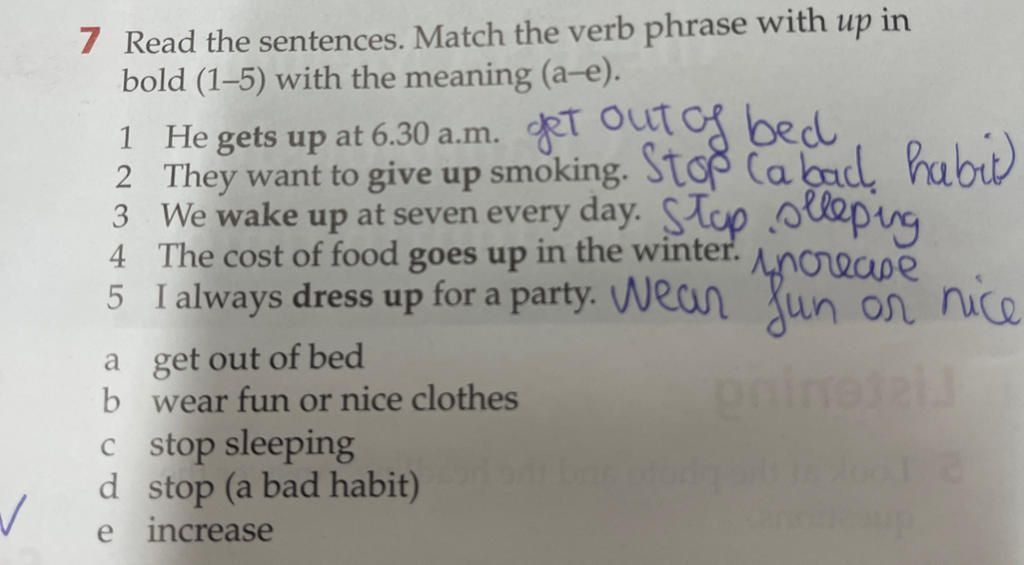 7 Read the sentences. Match the verb phrase with up in
bold (1–5) with the meaning (a–e).
1 He gets up at 6.30 a.m. get out of bed
2 They want to give up smoking. Stop (a bad habit)
3 We wake up at seven every day. Stop sleeping
4 The cost of food goes up in the winter. increase
5 I always dress up for a party. Wear fun or nice
a get out of bed
b wear fun or nice clothes
c stop sleeping
d stop (a bad habit)
e increase
Listening
5 Look at the photo and the
questions.